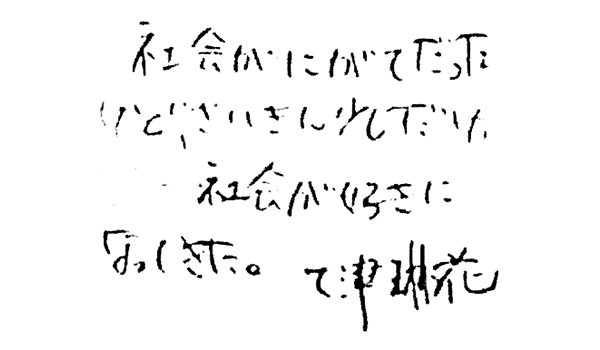 社会がにがてだった
けど、さいきん少しだけ
社会が好きに
なってきた。
津琳花